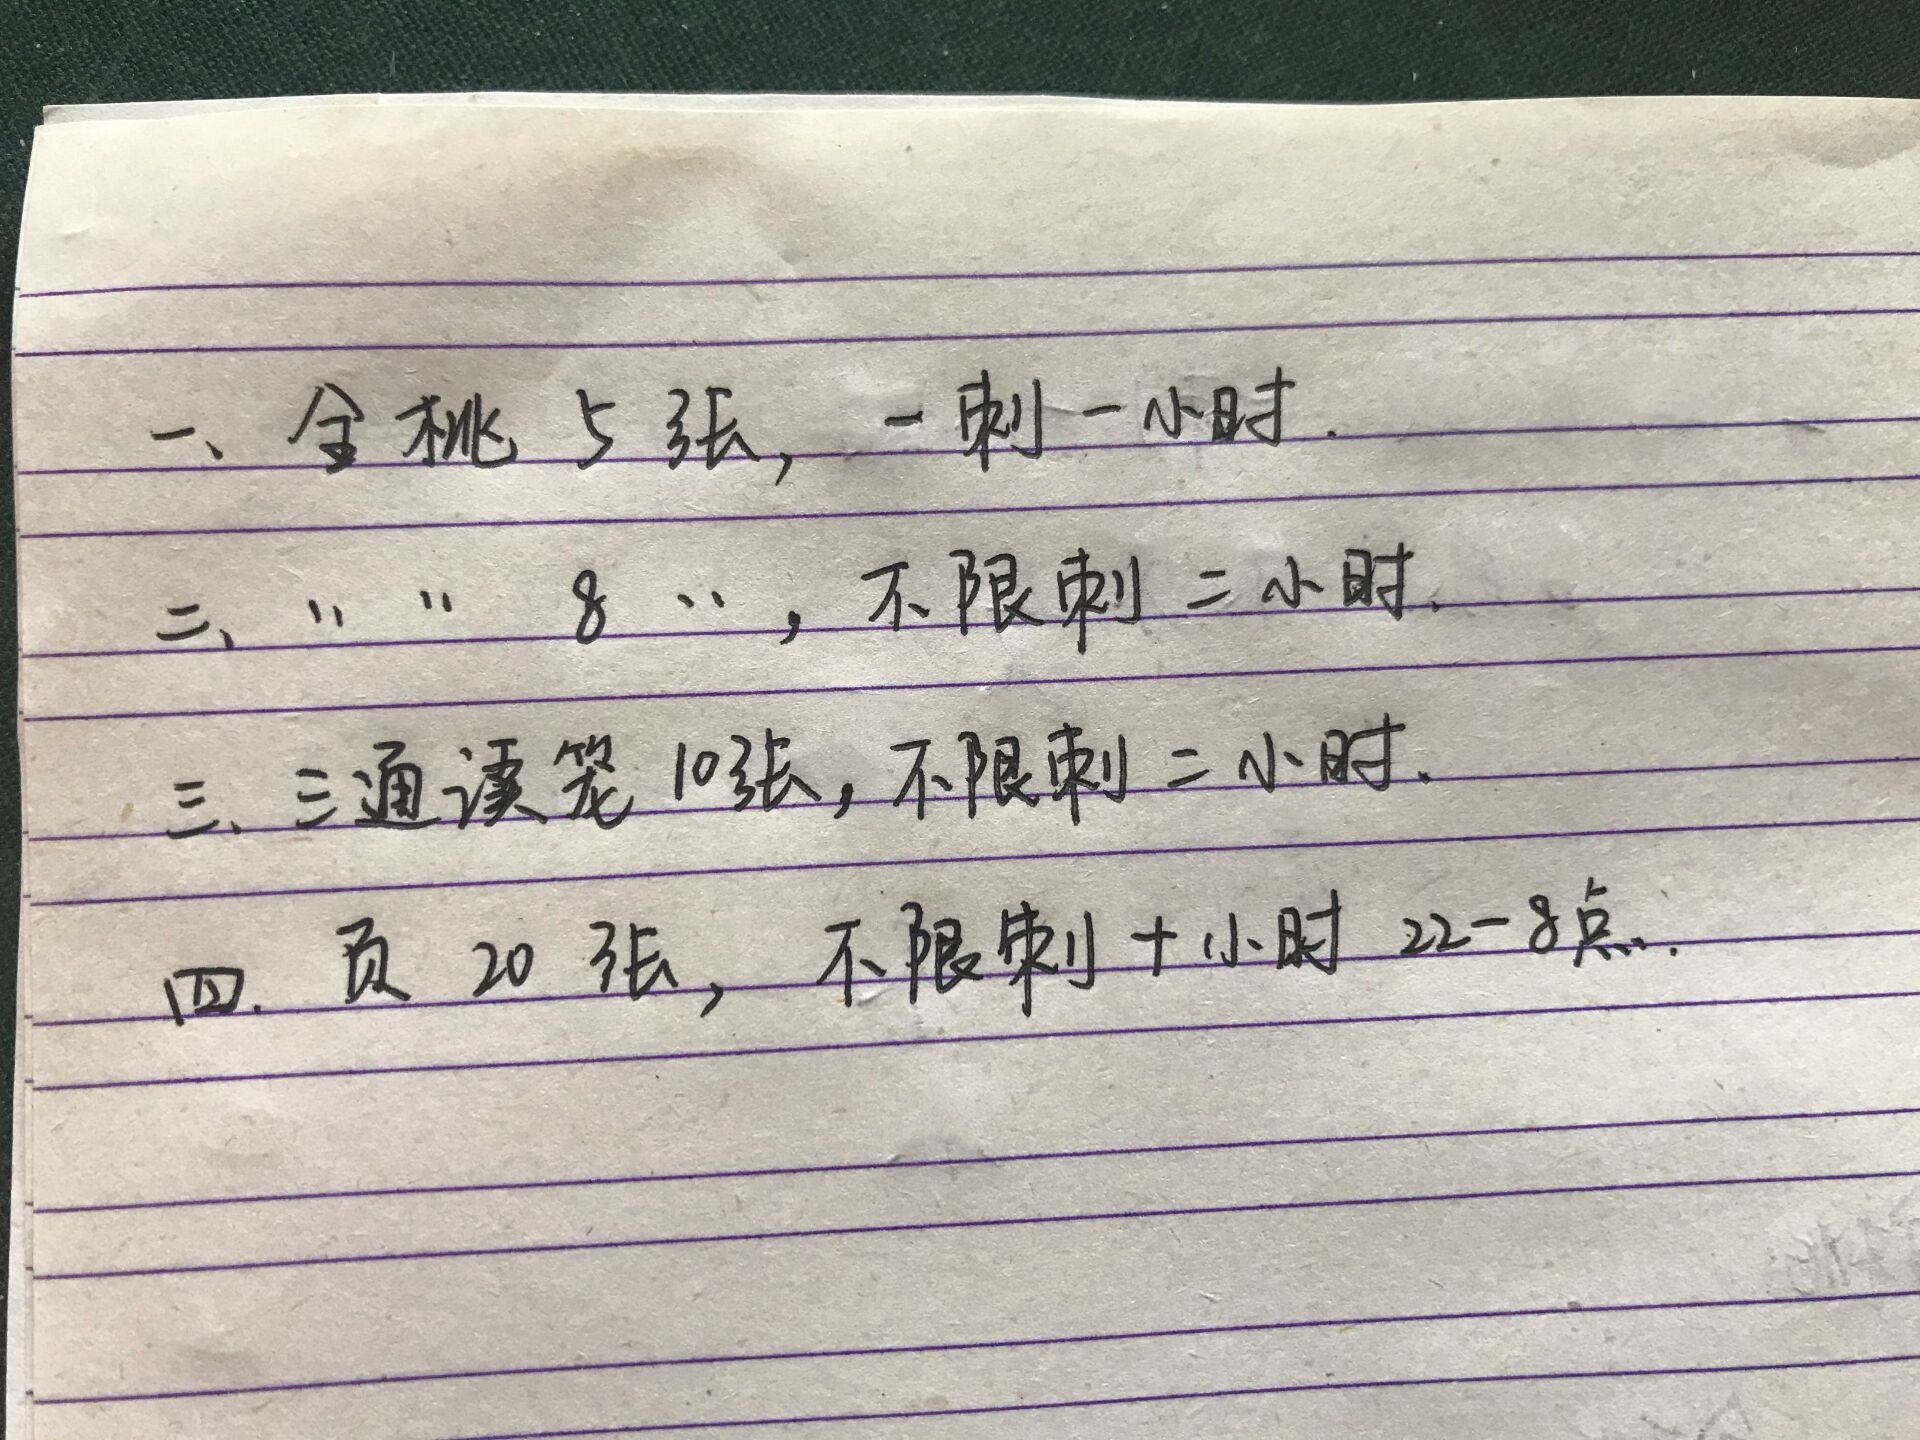 一、全桃 5 张，一刺一小时.
二、〃 〃 8 〃，不限刺二小时.
三、三通读笼 10张，不限刺二小时.
四. 页 20 张，不限刺十小时 22-8点.